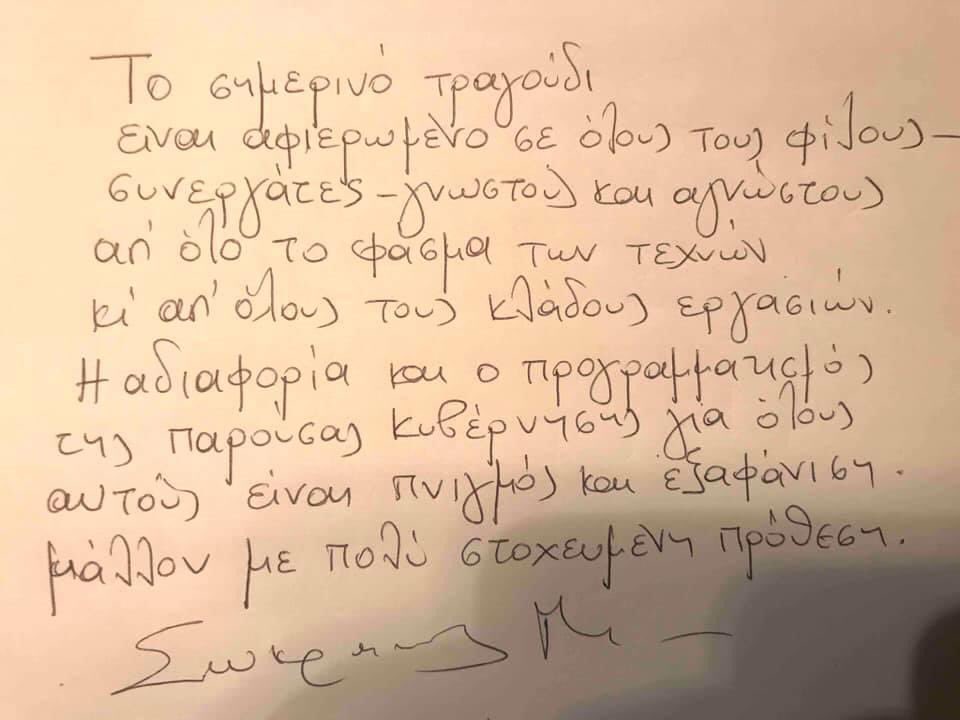 Το σημερινό τραγούδι
είναι αφιερωμένο σε όλους τους φίλους –
συνεργάτες – γνωστούς και αγνώστους
απ' όλο το φάσμα των τεχνών
κι' απ' όλους τους κλάδους εργασιών.
Η αδιαφορία και ο προγραμματισμός
της παρούσας κυβέρνησης για όλους
αυτούς είναι πνιγμός και εξαφάνιση.
μάλλον με πολύ στοχευμένη πρόθεση.
Σωκράτης Μ –